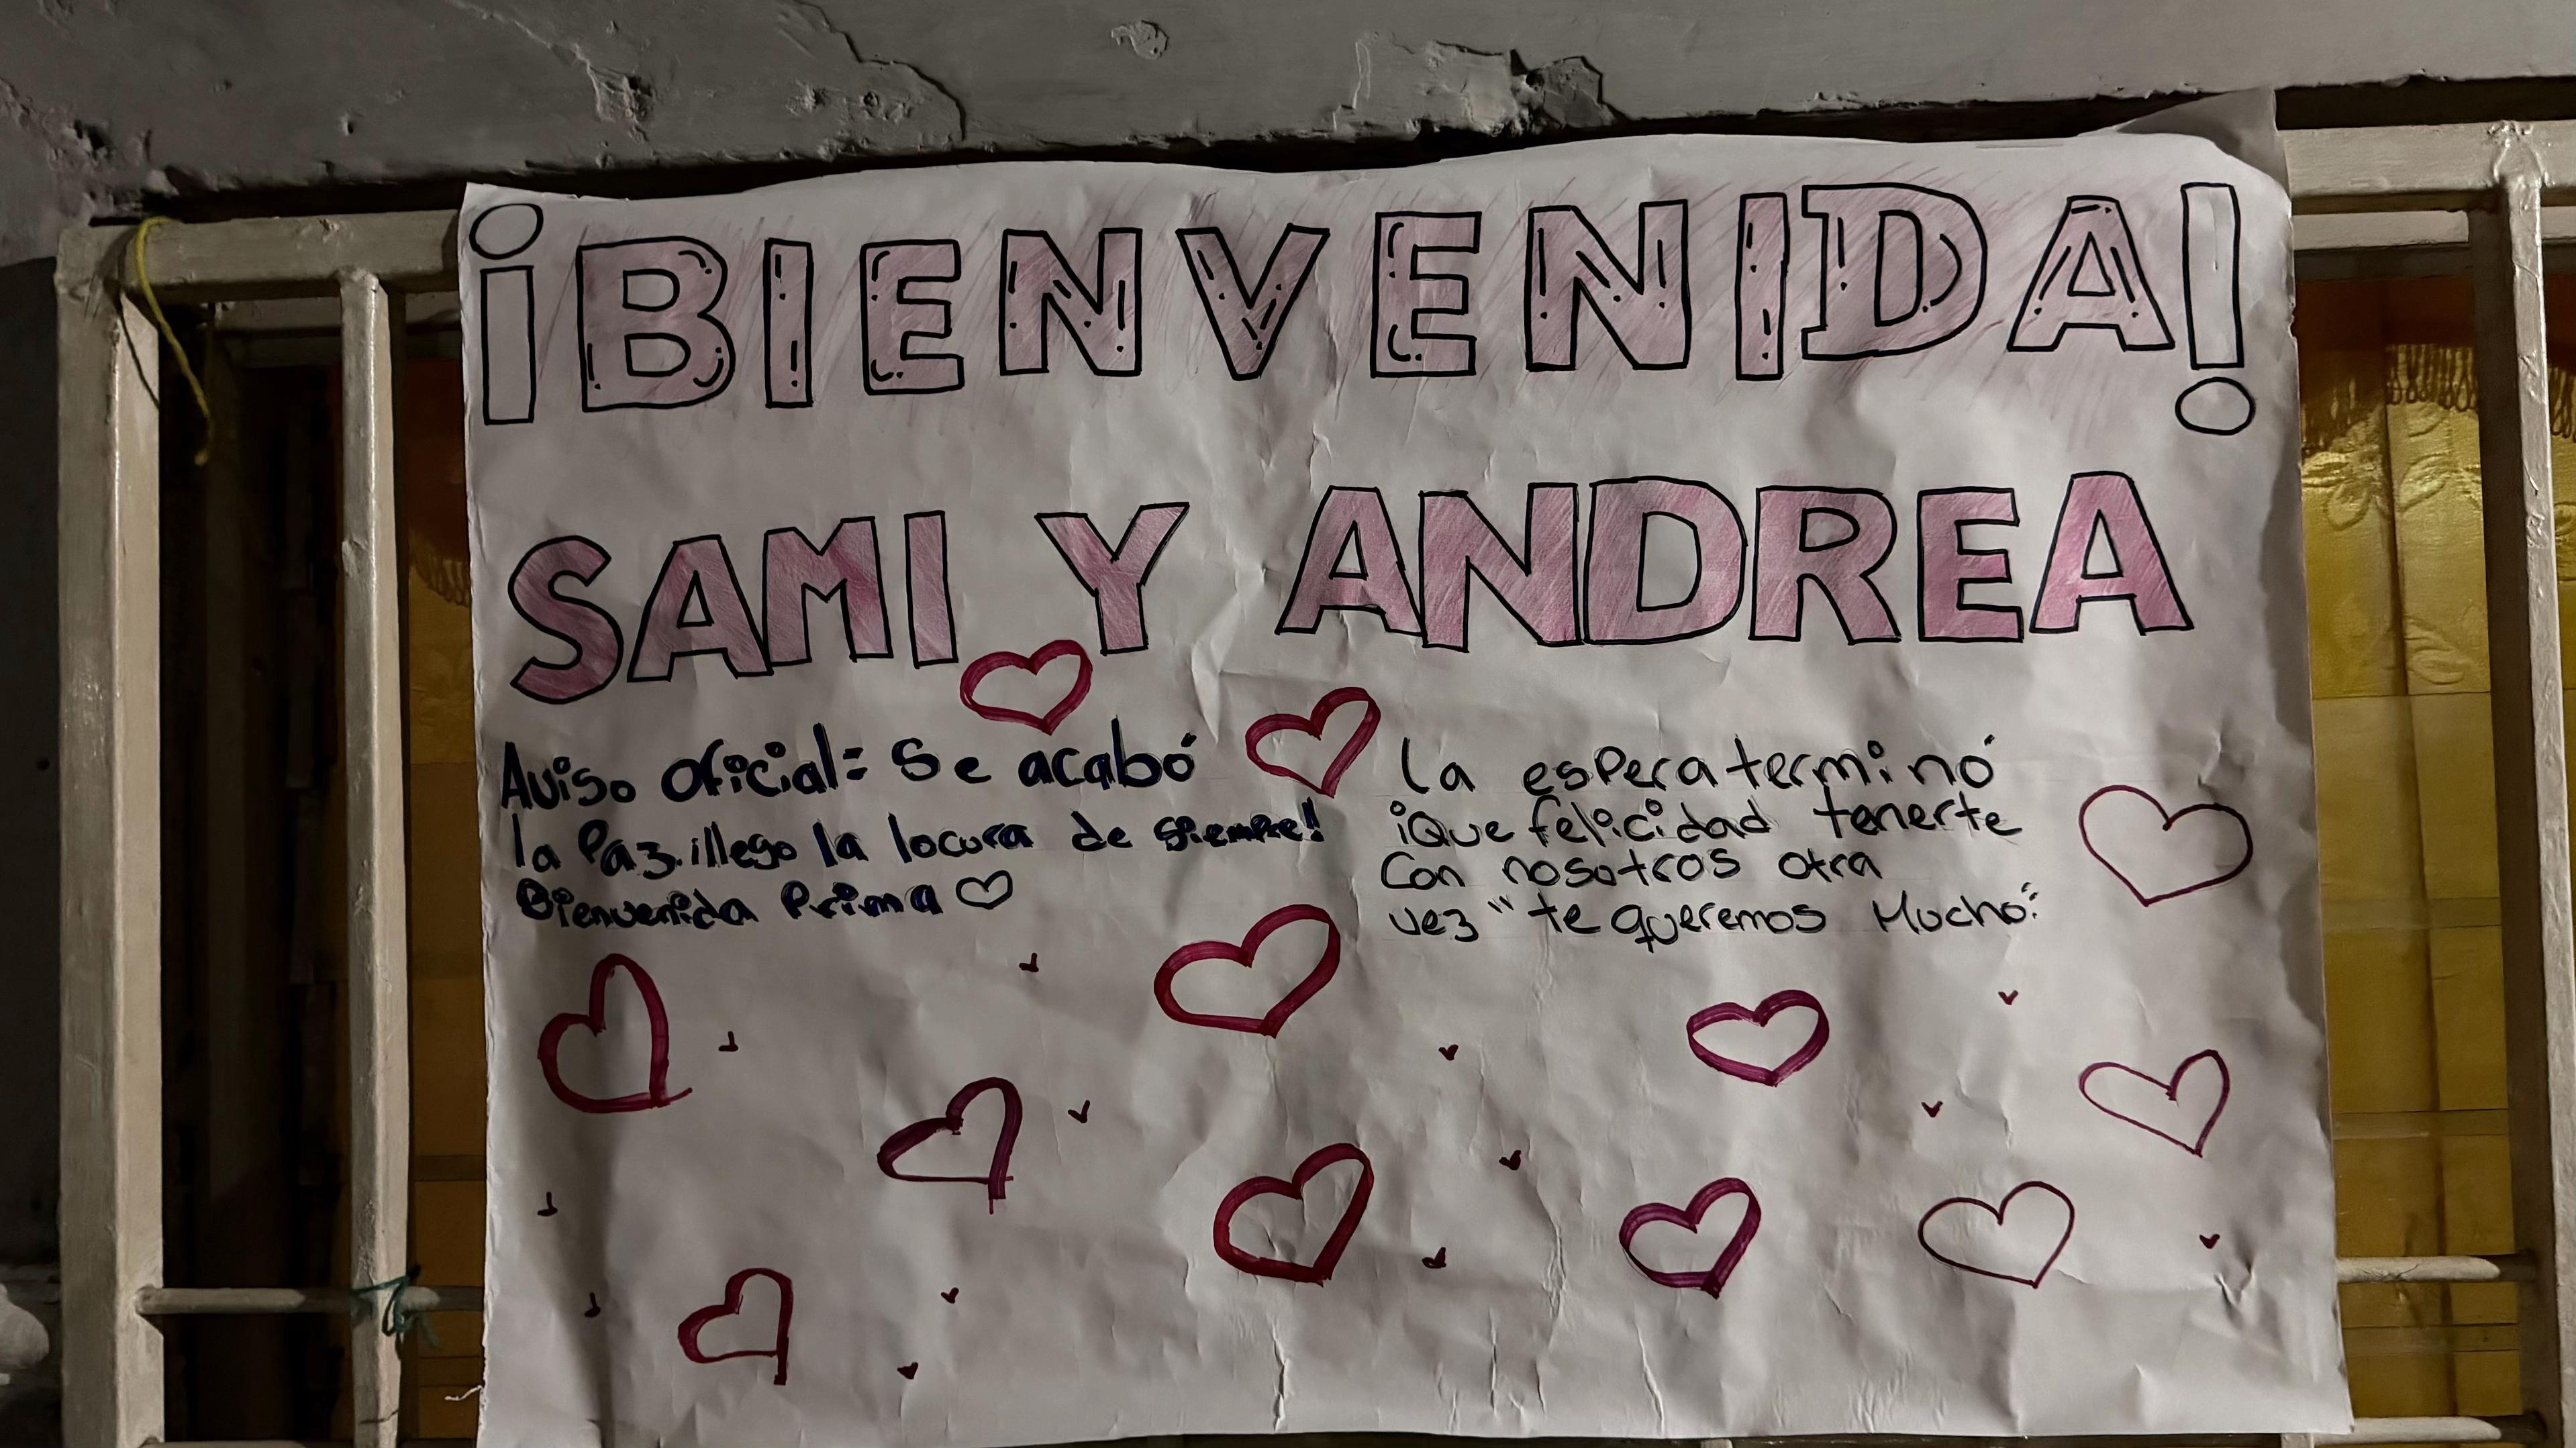 ¡BIENVENIDA!
SAMI Y ANDREA
Aviso oficial: Se acabó
la Paz. ¡llego la locura de siempre!
Bienvenida Prima
la espera terminó
¡Que felicidad tenerte
con nosotros otra
vez "te queremos Mucho: